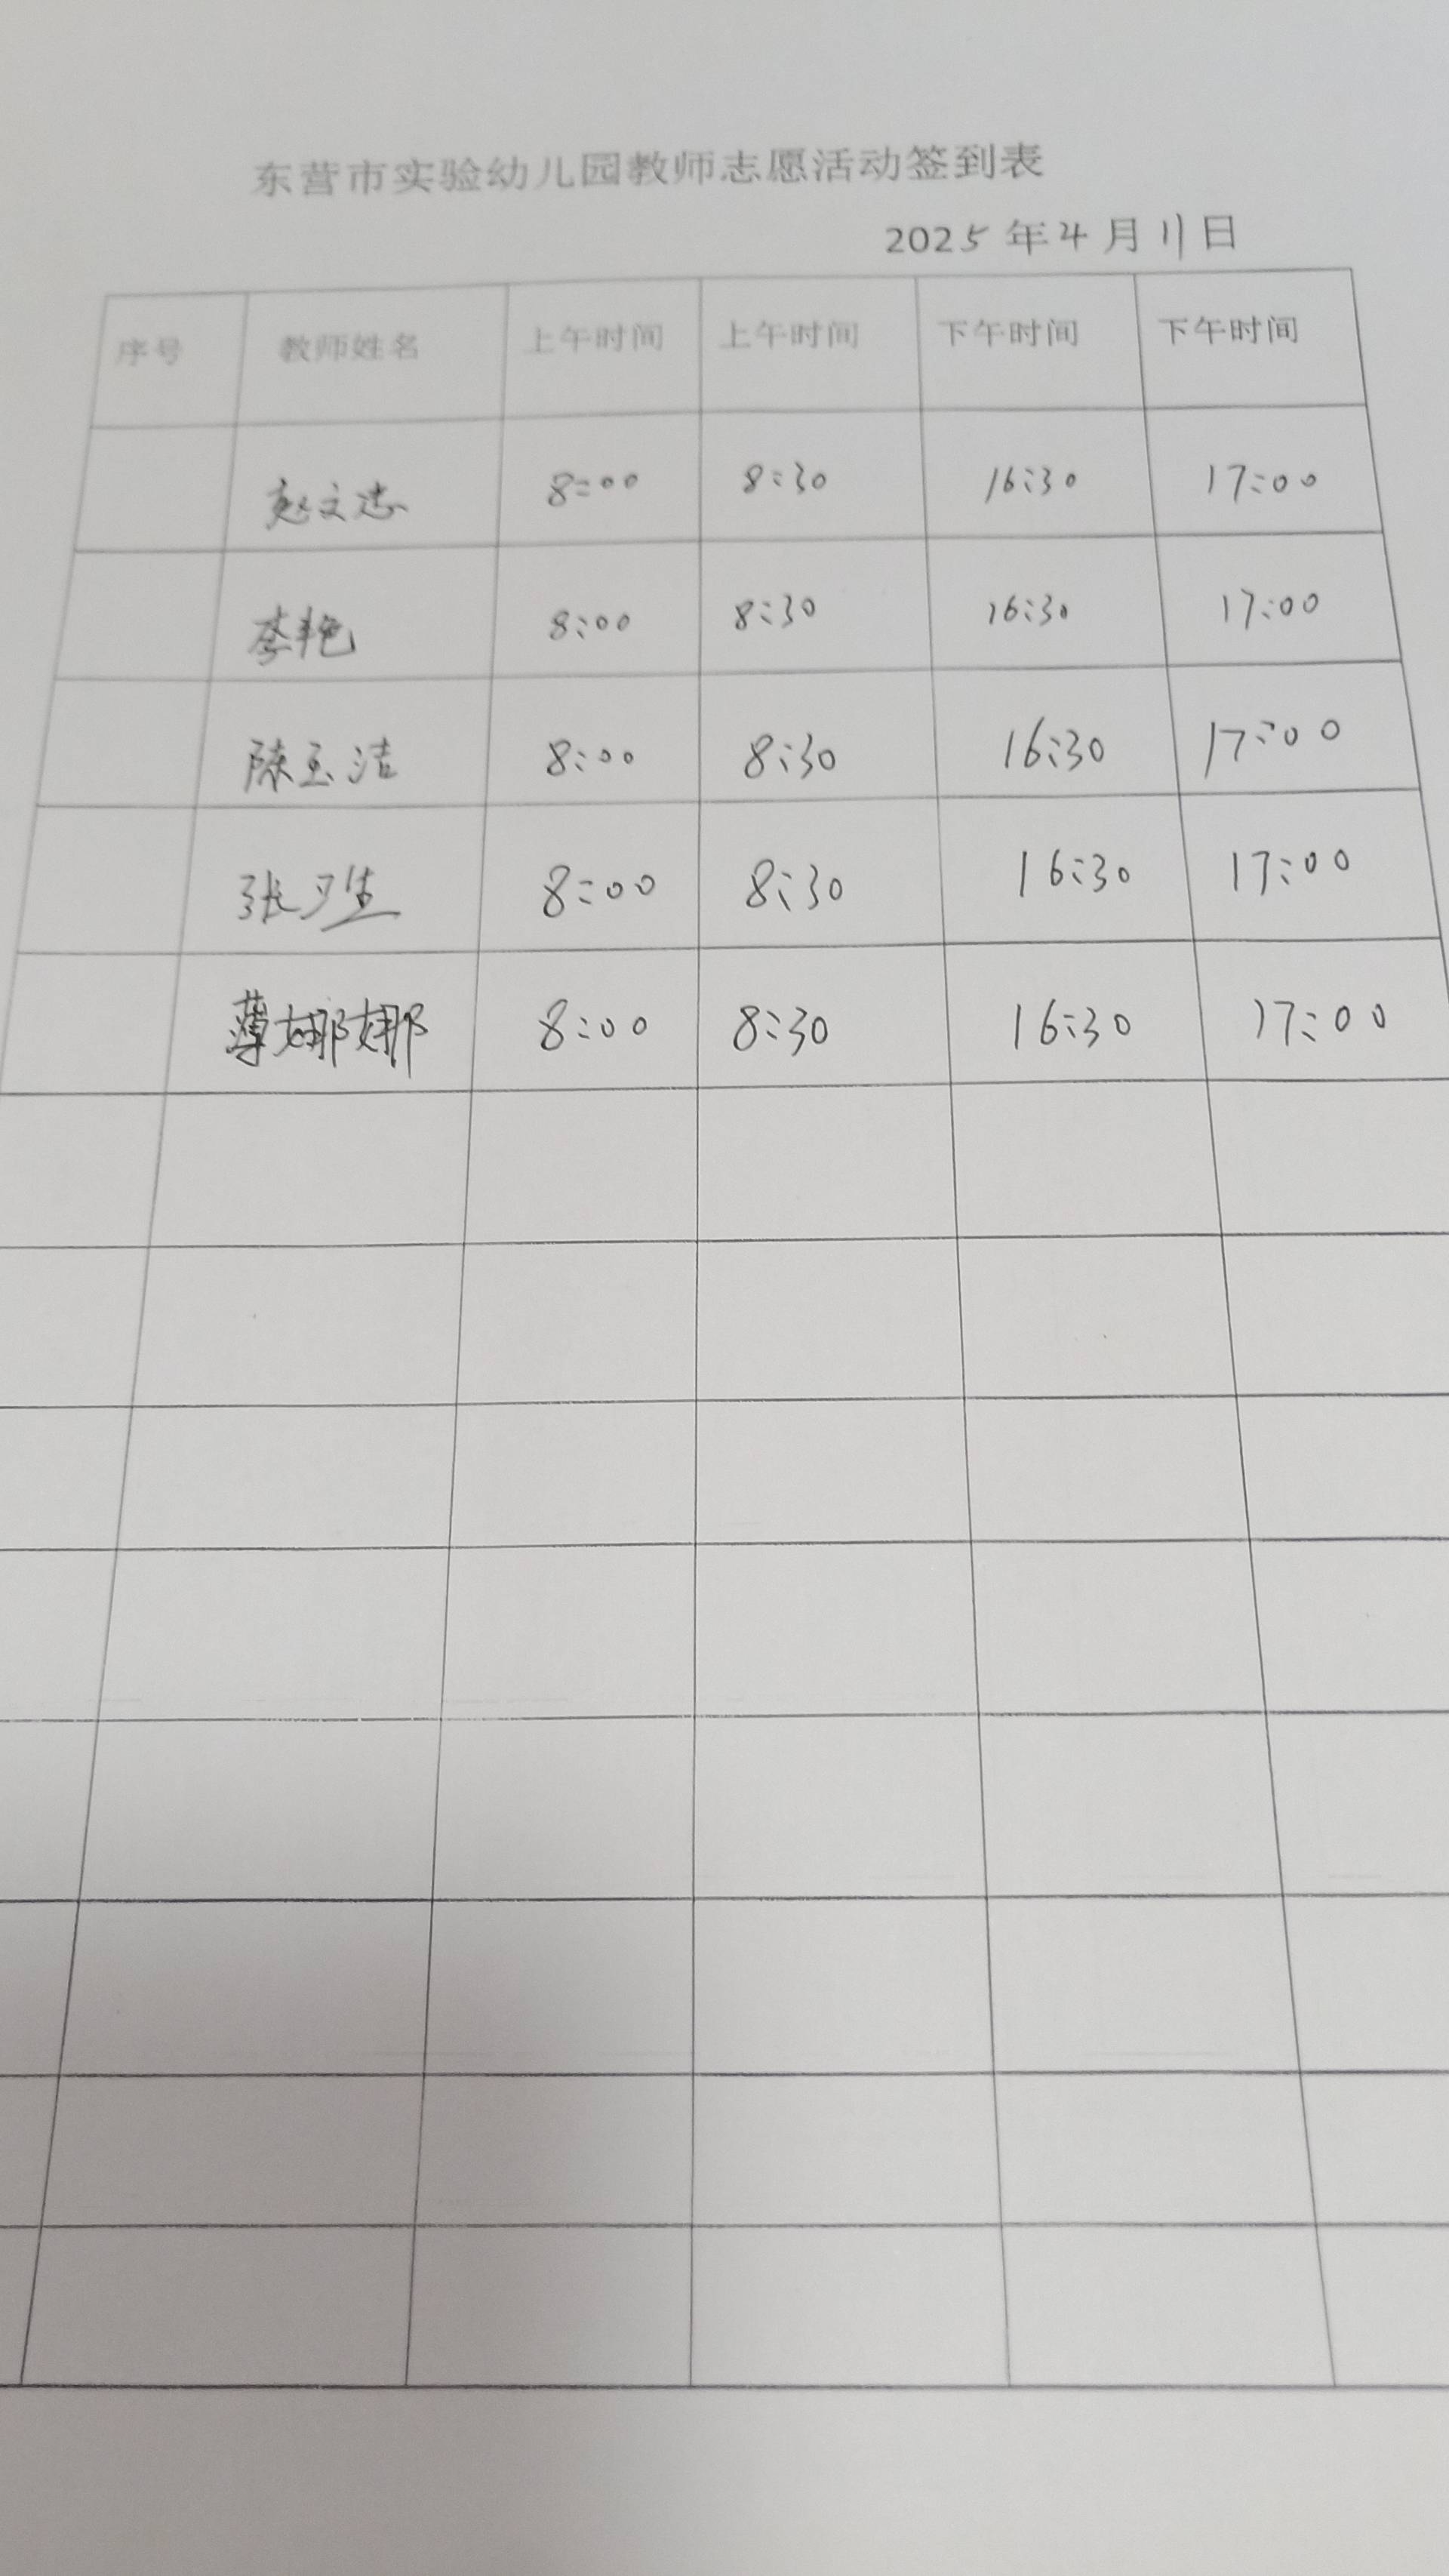 东营市实验幼儿园教师志愿活动签到表
2025年4月11日
序号 教师姓名 上午时间 上午时间 下午时间 下午时间
赵文志 8:00 8:30 16:30 17:00
李艳 8:00 8:30 16:30 17:00
陈玉洁 8:00 8:30 16:30 17:00
张 8:00 8:30 16:30 17:00
薄娜娜 8:00 8:30 16:30 17:00